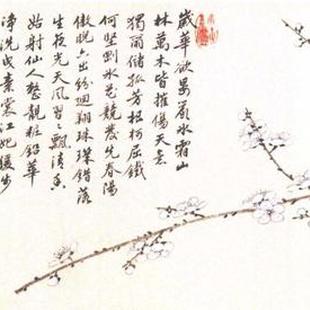 歲華欲晏嚴冰霜山
林萬木皆摧傷天意
獨爾儲孤芳枯柯屈鐵
何堅剛冰花競發先春陽
傲睨六出紛迴翔珠璣錯落
生夜光天風習習飄清香
姑射仙人靚粧鉛華
淨洗曳素裳江妃緩步